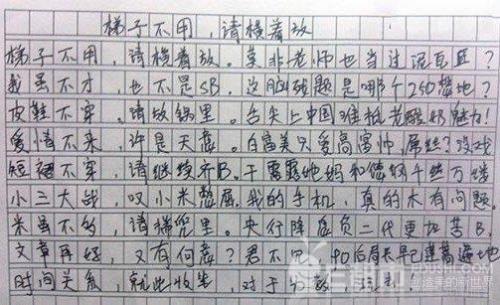 梯子不用,请横着放
梯子不用,请横着放。莫非老师也当过泥瓦匠?
我虽不才,也不是SB。这脑残题是哪个250楚地?
皮鞋不穿,请放锅里。舌尖上中国难抵老酸奶魅力!
爱情不来,许是天意。白富美只爱高富帅,屌丝?没戏
短裙不穿,请继续齐B。干露露她妈和您钢千丝万缕
小三大战,叹小米憋屈。我的手机,真的木有问题。
米虽不多,请揣兜里。央行降息负二代更加苦B。
文章再好,又有何意?君不见,90后局长早已遍地
时间关系,就此收笔,对于
EDUSHI.COM